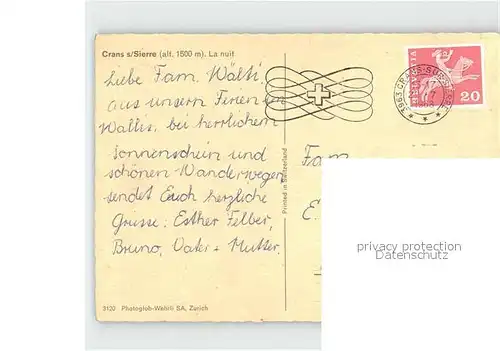 Crans s/Sierre (alt. 1500 m). La nuit
Liebe Fam. Wälti!
aus unsern Ferien im
Wallis, bei herrlichem
Sonnenschein und
schönen Wanderwegen
sendet Euch herzliche
Grüsse: Esther Felber,
Bruno, Vater + Mutter.
3120 Photoglob-Wehrli SA, Zürich
Printed in Switzerland
HELVETIA
20
3963 CRANS-SUR-SIERRE
Fam.
E.
privacy protection
Datenschutz